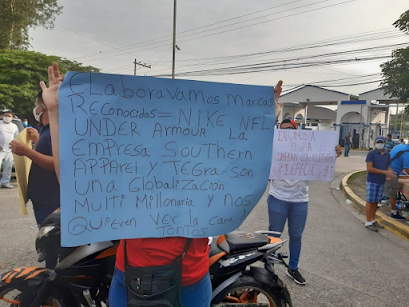 Elaboravamos Marcas
Reconocidas = NIKE NFL
UNDER ArmouR La
Empresa SouTHern
APPaRel y TEGra son
una Globalización
MulTi Millonaria y nos
Quieren Ver la cara
TonTos